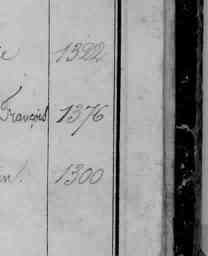 1322
François 1376
1300